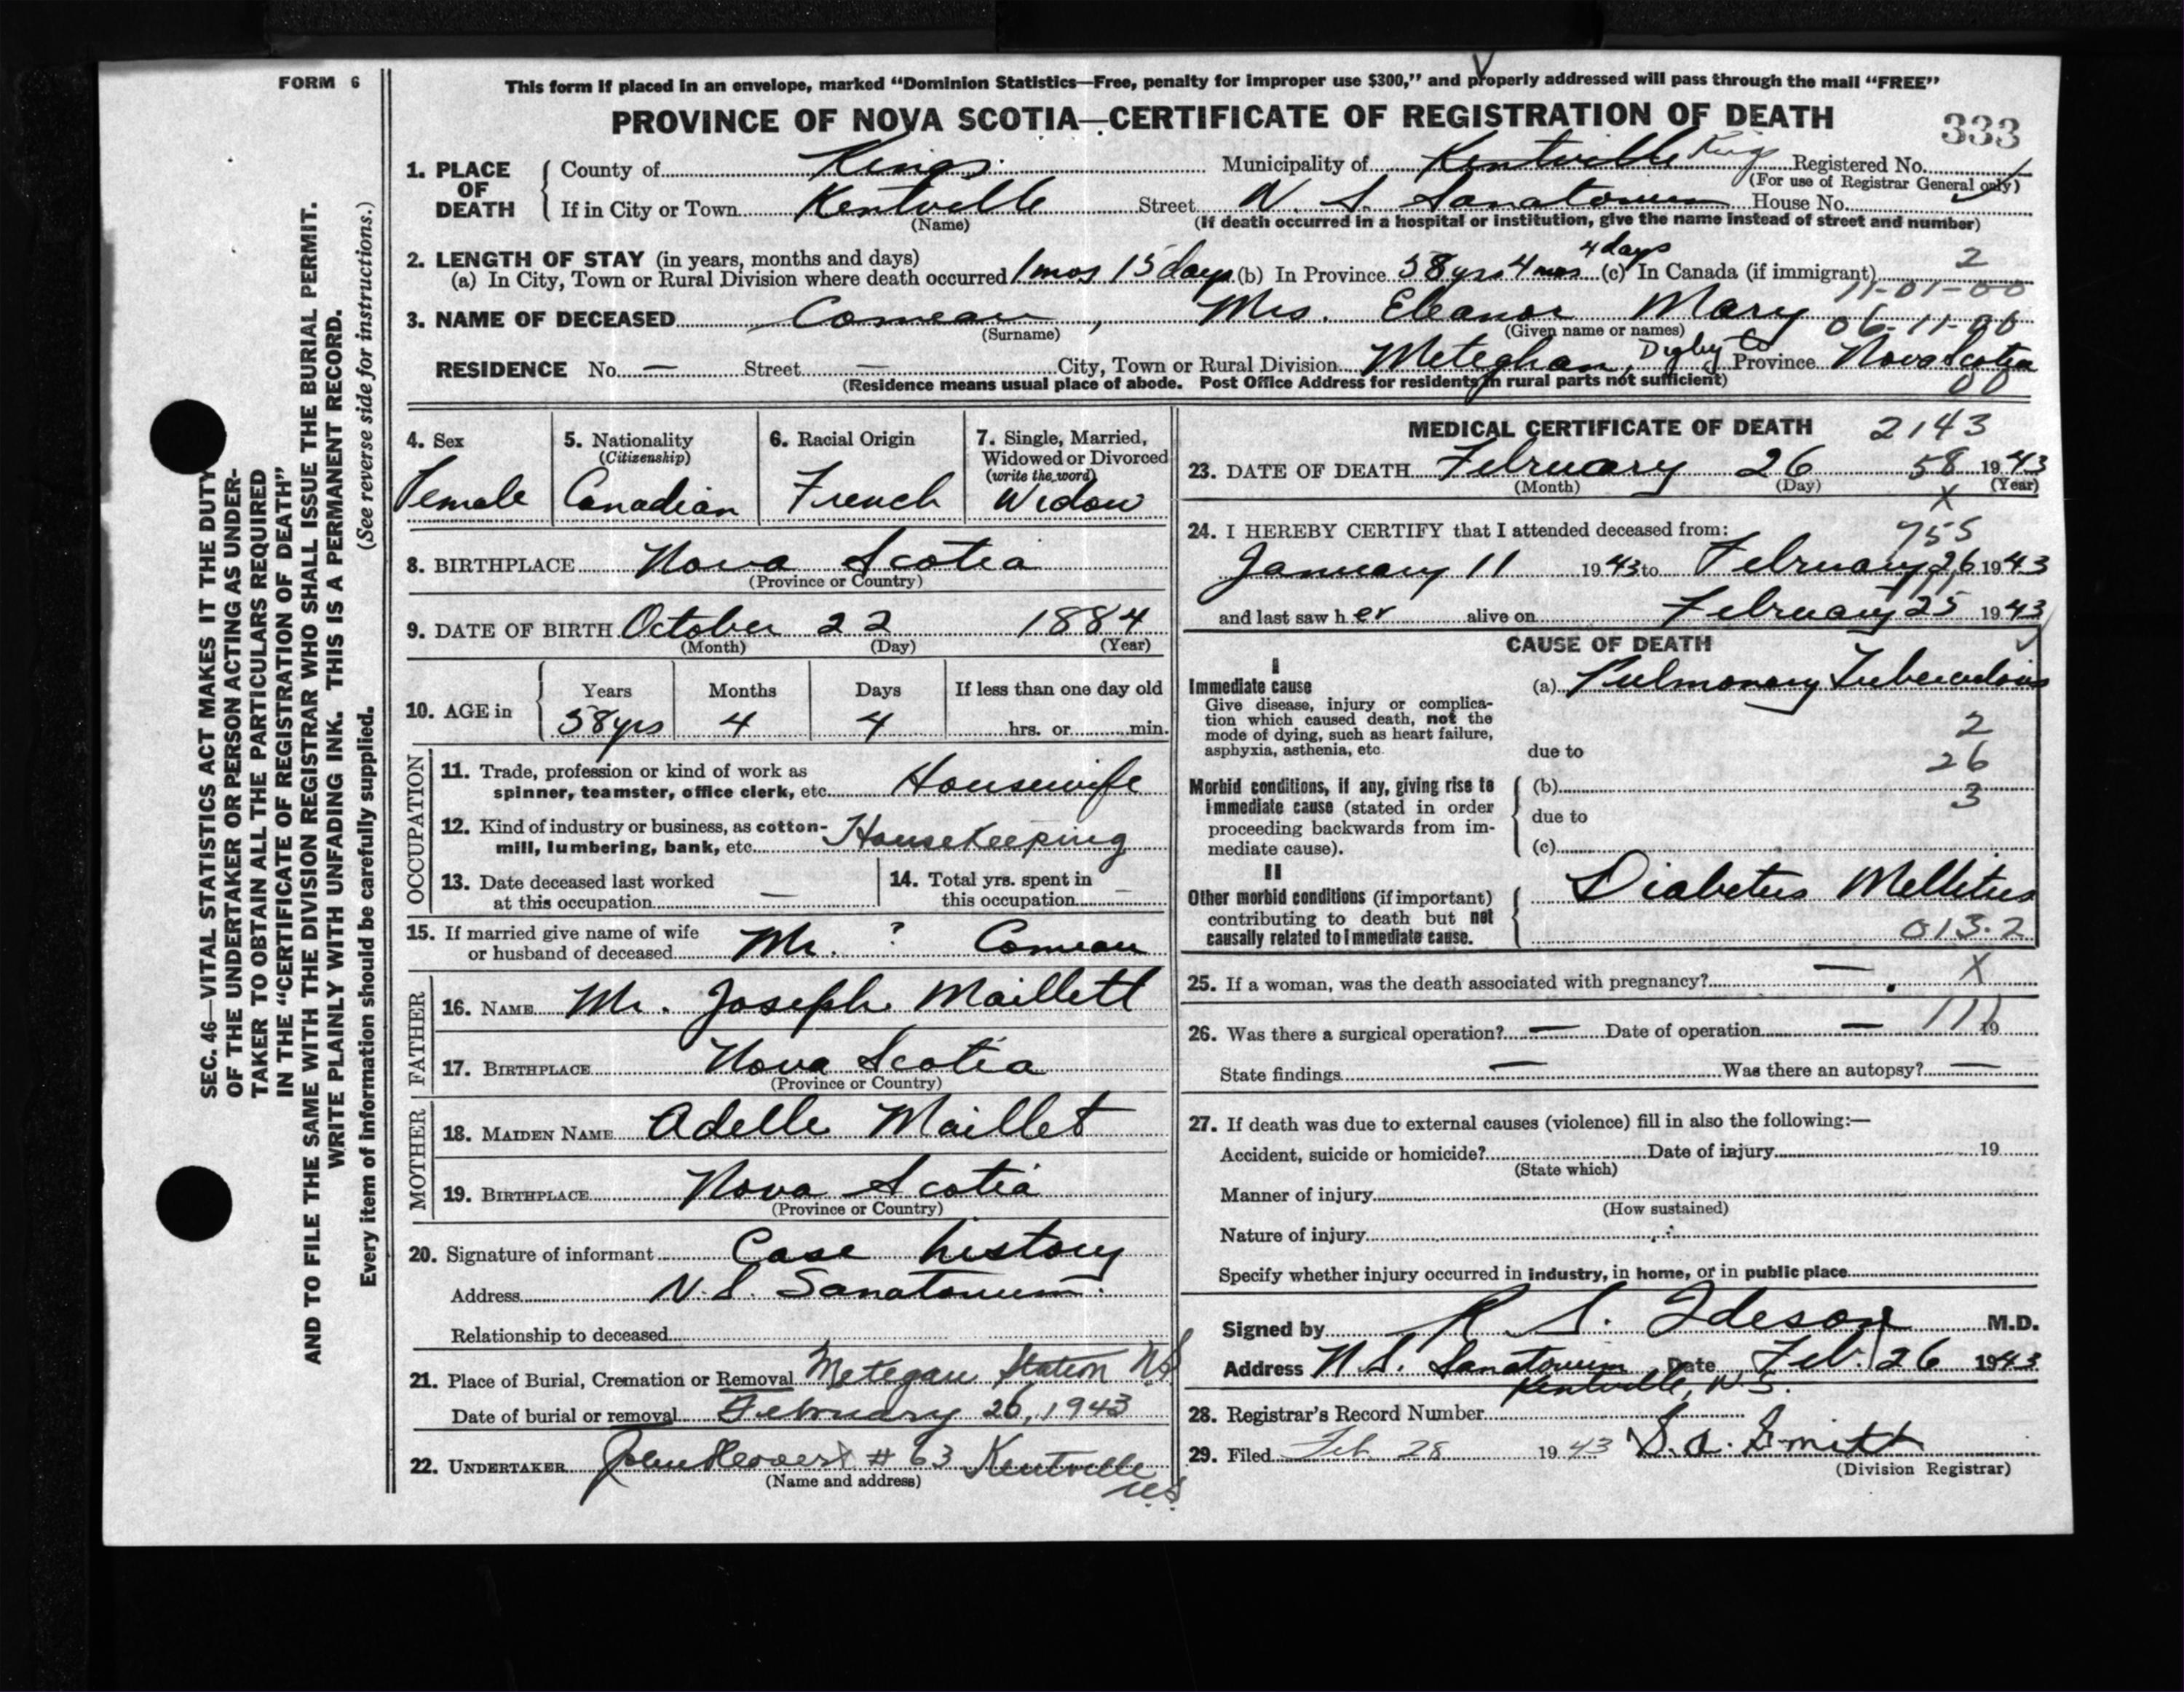 FORM 6
This form if placed in an envelope, marked “Dominion Statistics—Free, penalty for improper use $300,” and properly addressed will pass through the mail “FREE”
PROVINCE OF NOVA SCOTIA—CERTIFICATE OF REGISTRATION OF DEATH
333
1. PLACE OF DEATH
County of Kings Municipality of Kentville Kings Registered No.
(For use of Registrar General only)
If in City or Town Kentville Street N. S. Sanatorium House No.
(Name) (If death occurred in a hospital or institution, give the name instead of street and number)
2. LENGTH OF STAY (in years, months and days)
(a) In City, Town or Rural Division where death occurred 1 mos 15 days (b) In Province 58 yrs 4 mos 4 days (c) In Canada (if immigrant)
2
11-01-00
3. NAME OF DECEASED Comeau, Mrs. Eleanor Mary
(Surname) (Given name or names)
06-11-00
RESIDENCE No. — Street — City, Town or Rural Division Meteghan, Digby Co Province Nova Scotia
(Residence means usual place of abode. Post Office Address for residents in rural parts not sufficient)
00
4. Sex
Female
5. Nationality
(Citizenship)
Canadian
6. Racial Origin
French
7. Single, Married, Widowed or Divorced
(write the word)
Widow
8. BIRTHPLACE Nova Scotia
(Province or Country)
9. DATE OF BIRTH October 22 1884
(Month) (Day) (Year)
10. AGE in Years Months Days If less than one day old
58 yrs 4 4 hrs. or min.
OCCUPATION
11. Trade, profession or kind of work as
spinner, teamster, office clerk, etc. Housewife
12. Kind of industry or business, as cotton-
mill, lumbering, bank, etc. Housekeeping
13. Date deceased last worked
at this occupation —
14. Total yrs. spent in
this occupation —
15. If married give name of wife
or husband of deceased Mr. ? Comeau
FATHER
16. NAME Mr. Joseph Maillett
17. BIRTHPLACE Nova Scotia
(Province or Country)
MOTHER
18. MAIDEN NAME Adelle Maillet
19. BIRTHPLACE Nova Scotia
(Province or Country)
20. Signature of informant Case history
Address N.S. Sanatorium.
Relationship to deceased
21. Place of Burial, Cremation or Removal Metegan Station NS
Date of burial or removal February 26, 1943
22. UNDERTAKER # 63 Kentville NS
(Name and address)
MEDICAL CERTIFICATE OF DEATH
2143
23. DATE OF DEATH February 26 1943
(Month) (Day) (Year)
58
X
24. I HEREBY CERTIFY that I attended deceased from:
755
January 11 1943 to February 26 1943
and last saw her alive on February 25 1943
CAUSE OF DEATH
I
Immediate cause
Give disease, injury or complica-
tion which caused death, not the
mode of dying, such as heart failure,
asphyxia, asthenia, etc.
(a) Pulmonary Tuberculosis
2
due to
26
Morbid conditions, if any, giving rise to
immediate cause (stated in order
proceeding backwards from im-
mediate cause).
(b)
3
due to
(c)
II
Other morbid conditions (if important)
contributing to death but not
causally related to immediate cause.
Diabetus Mellitus
013.2
25. If a woman, was the death associated with pregnancy? —
X
26. Was there a surgical operation? — Date of operation — 19
111
State findings — Was there an autopsy? —
27. If death was due to external causes (violence) fill in also the following:—
Accident, suicide or homicide? Date of injury 19
(State which)
Manner of injury
(How sustained)
Nature of injury
Specify whether injury occurred in industry, in home, or in public place
Signed by R S. Ideson M.D.
Address N.S. Sanatorium Date Feb. 26 1943
Kentville, N.S.
28. Registrar's Record Number
29. Filed Feb 28 1943 S. A. Smith
(Division Registrar)
SEC. 46—VITAL STATISTICS ACT MAKES IT THE DUTY
OF THE UNDERTAKER OR PERSON ACTING AS UNDER-
TAKER TO OBTAIN ALL THE PARTICULARS REQUIRED
IN THE “CERTIFICATE OF REGISTRATION OF DEATH”
AND TO FILE THE SAME WITH THE DIVISION REGISTRAR WHO SHALL ISSUE THE BURIAL PERMIT.
WRITE PLAINLY WITH UNFADING INK. THIS IS A PERMANENT RECORD.
(See reverse side for instructions.)
Every item of information should be carefully supplied.